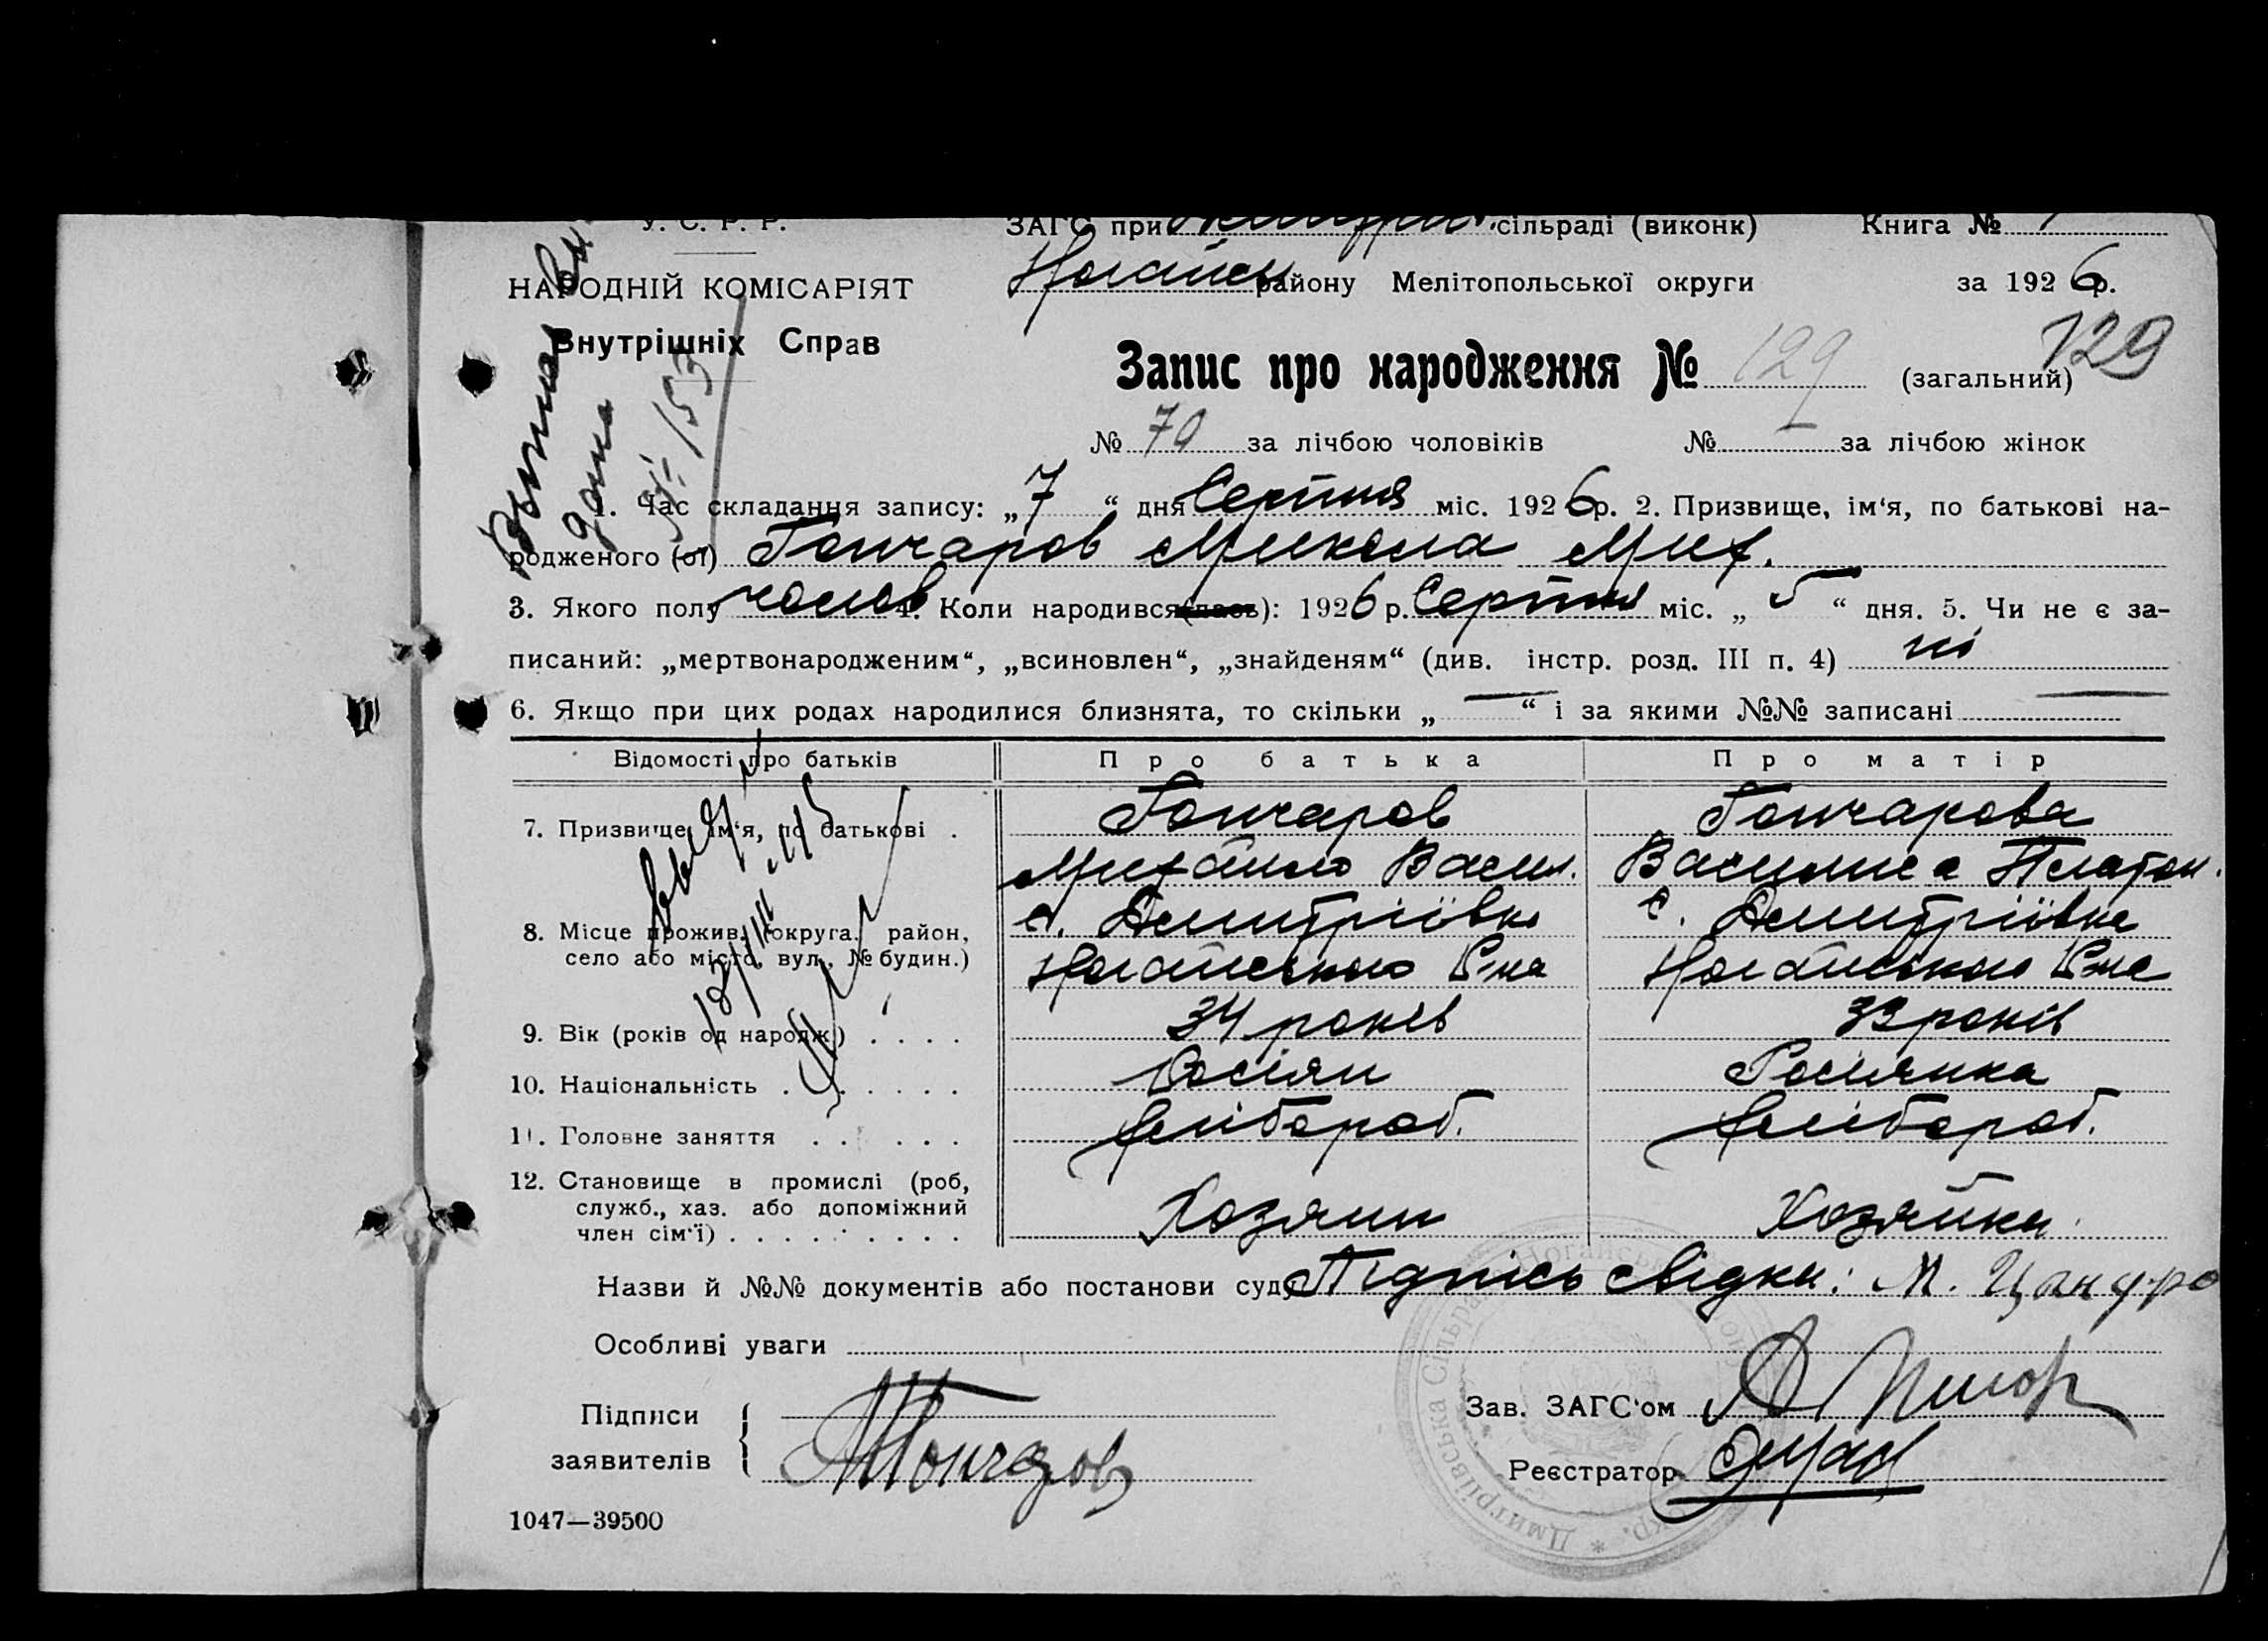 У. С. Р. Р.
НАРОДНІЙ КОМІСАРІЯТ
Внутрішніх Справ
ЗАГС при сільраді (виконк) Книга №
Ногайськ району Мелітопольської округи за 1926 р.
Запис про народження № 129 (загальний) 129
№ 70 за лічбою чоловіків № за лічбою жінок
1. Час складання запису: „7“ дня Серпня міс. 1926 р. 2. Призвище, ім‘я, по батькові на-
родженого (ої) Гончаров Микола Мих.
3. Якого полу чолов 4. Коли народився(лась): 1926 р. Серпня міс. „5“ дня. 5. Чи не є за-
писаний: „мертвонародженим“, „всиновлен“, „знайденям“ (див. інстр. розд. III п. 4) ні
6. Якщо при цих родах народилися близнята, то скільки „—“ і за якими №№ записані —
Відомості про батьків Про батька Про матір
7. Призвище, ім‘я, по батькові . Гончаров Гончарова
Михайло Васил. Василиса Платон.
8. Місце прожив. (округа, район, с. Демитріївка с. Демитріївка
село або місто, вул., № будин.) Ногайського Р-на Ногайського Р-на
9. Вік (років од народж.) . . . . 34 років 33 років
10. Національність . . . . . . Росіян Росіянка
11. Головне заняття . . . . . хліbороб. хлібороб.
12. Становище в промислі (роб,
служб., хаз. або допоміжний Хозяин Хозяйка
член сім‘ї) . . . . . . . . .
Назви й №№ документів або постанови суду Підпись свідка: М.
Особливі уваги
Підписи
заявителів Гончаров
Зав. ЗАГС‘ом
Реєстратор
1047—39500